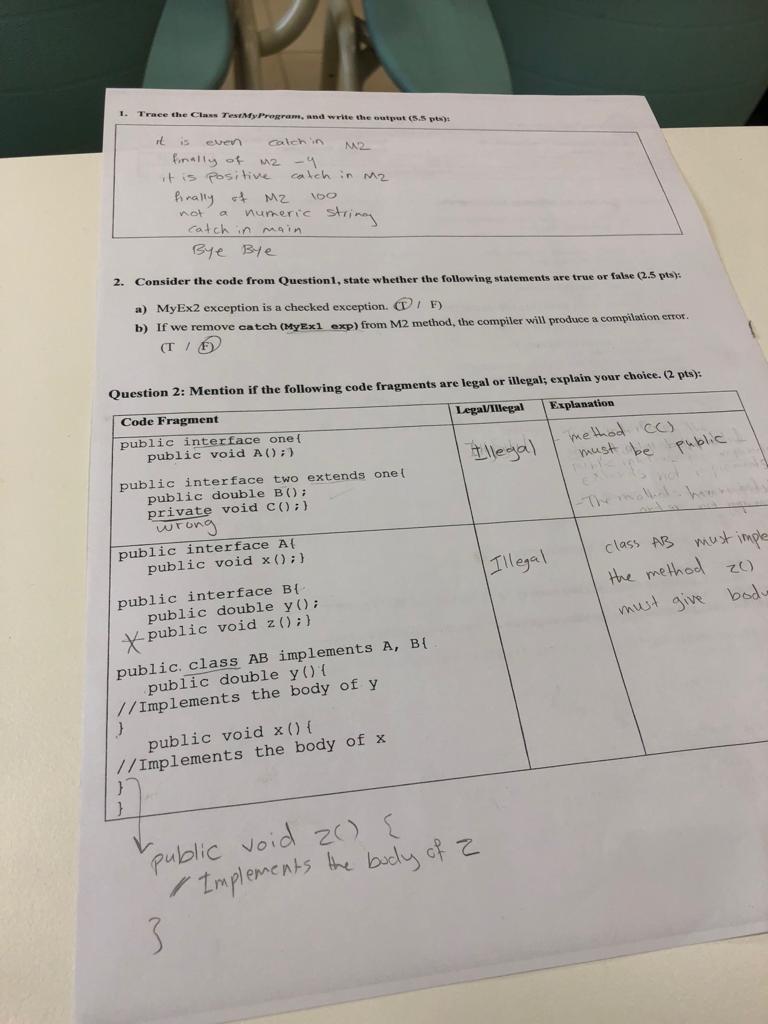 1. Trace the Class TestMyProgram, and write the output (5.5 pts):
it is even catch in M2
finally of M2 -4
it is positive catch in M2
finally of M2 100
not a numeric string
catch in main
Bye Bye
2. Consider the code from Question1, state whether the following statements are true or false (2.5 pts):
a) MyEx2 exception is a checked exception. (T / F)
b) If we remove catch (MyEx1 exp) from M2 method, the compiler will produce a compilation error.
(T / F)
Question 2: Mention if the following code fragments are legal or illegal; explain your choice. (2 pts):
Code Fragment Legal/Illegal Explanation
public interface one{
public void A();}
public interface two extends one{
public double B();
private void C();}
wrong
Illegal
method C()
must be public
public interface A{
public void x();}
public interface B{
public double y();
public void z();}
public class AB implements A, B{
public double y(){
//Implements the body of y
}
public void x(){
//Implements the body of x
}
}
Illegal
class AB must imple
the method z()
must give body
public void z() {
/ Implements the body of z
}